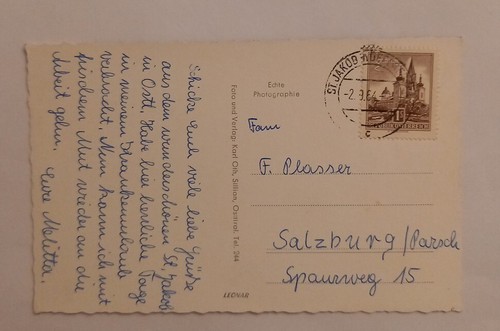 Schicke Euch viele liebe Grüße
aus dem wunderschönen St. Jakob
in Ostt. Habe hier herrliche Tage
in meinem Krankenurlaub
verbracht. Nun kann ich mit
frischem Mut wieder an die
Arbeit gehn. Eure Melitta.
Foto und Verlag: Karl Oth, Sillian, Osttirol. Tel. 244
LEOVAR
Echte
Photographie
ST. JAKOB
-2.9.64
c
1S
Fam
F. Plasser
Salzburg/Parsch
Spaurweg 15